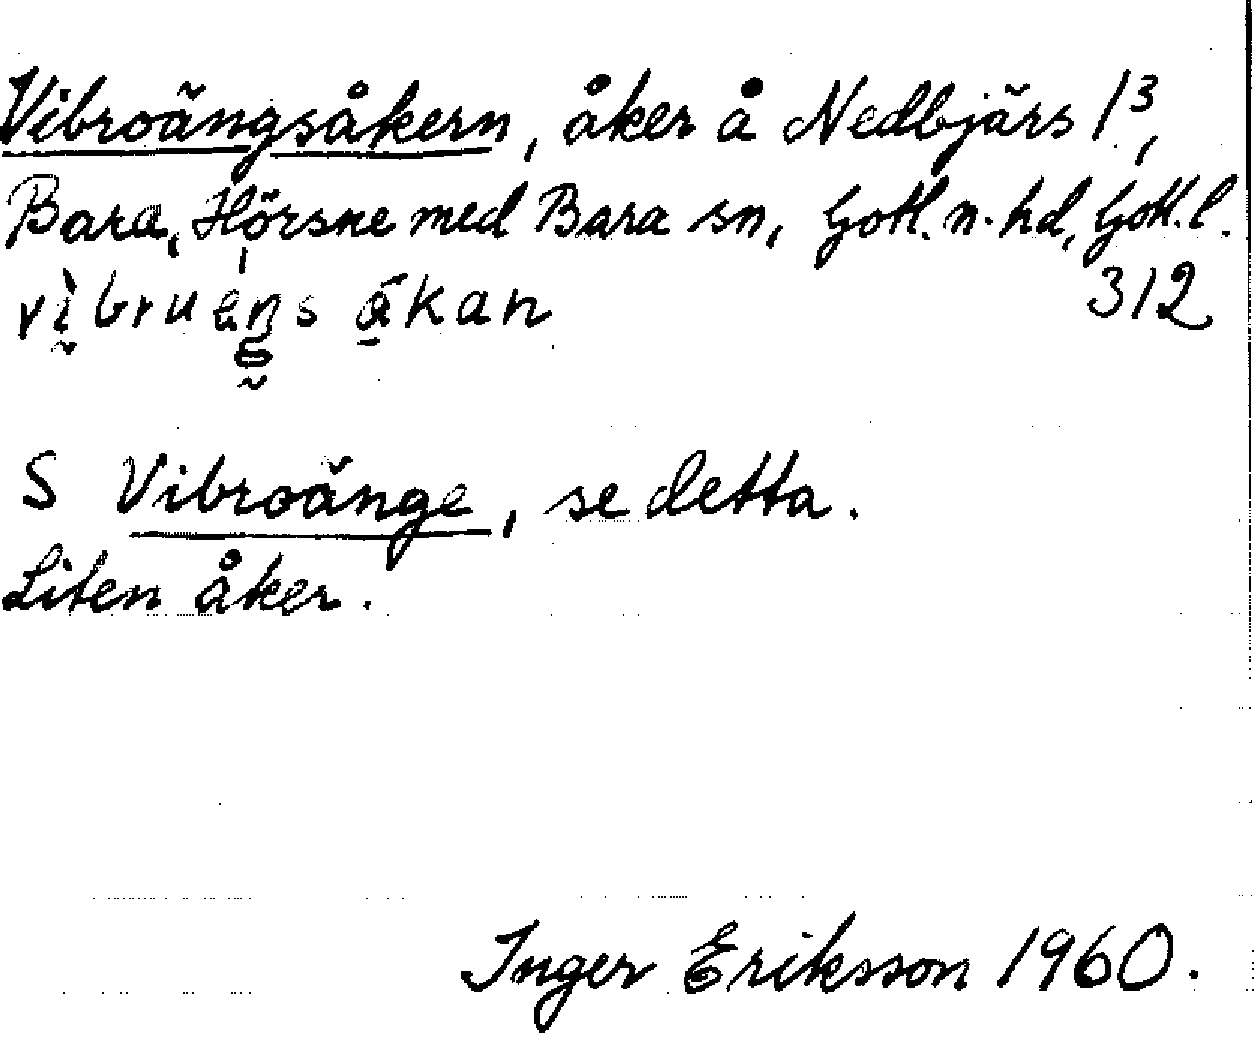 Vibroängsåkern, åker å Nedbjärs 1³,
Bara, Hörsne med Bara sn, Gotl. n. hd, Gotl. l.
vibruäŋs åkan 312
S Vibroänge, se detta.
Liten åker.
Inger Eriksson 1960.